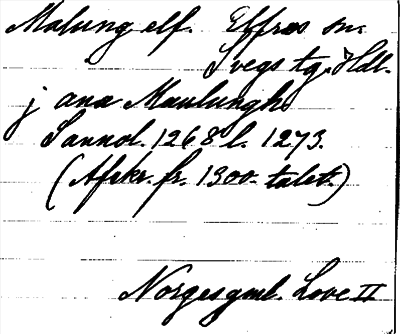 Malung elf. Elfros sn.
Svegs tg. Hdl.
j ana Maulungh
Sannol. 1268 l. 1273.
(Afskr. fr. 1300-talet.)
Norges gml. Love II